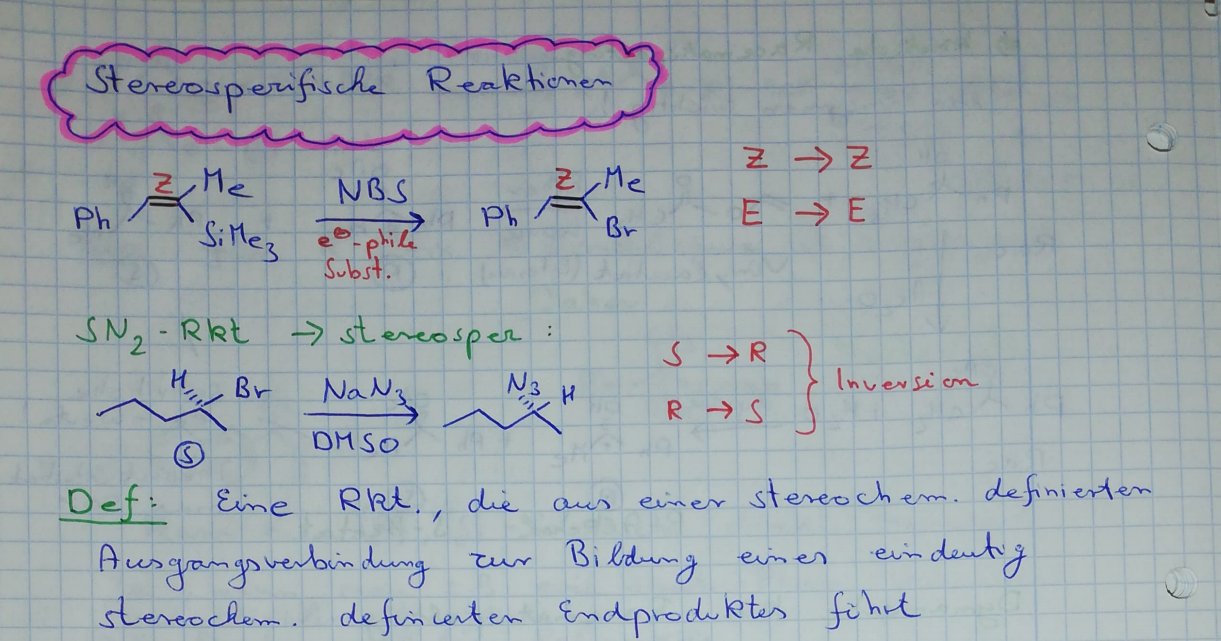 Stereospezifische Reaktionen
Z Me NBS Z Me Z → Z
Ph SiMe3 e⊖-phile Subst. Ph Br E → E
SN2-Rkt → stereospez:
H Br NaN3 N3 H S → R
DMSO R → S Inversion
S
Def: Eine Rkt., die aus einer stereochem. definierten
Ausgangsverbindung zur Bildung eines eindeutig
stereochem. definierten Endproduktes führt